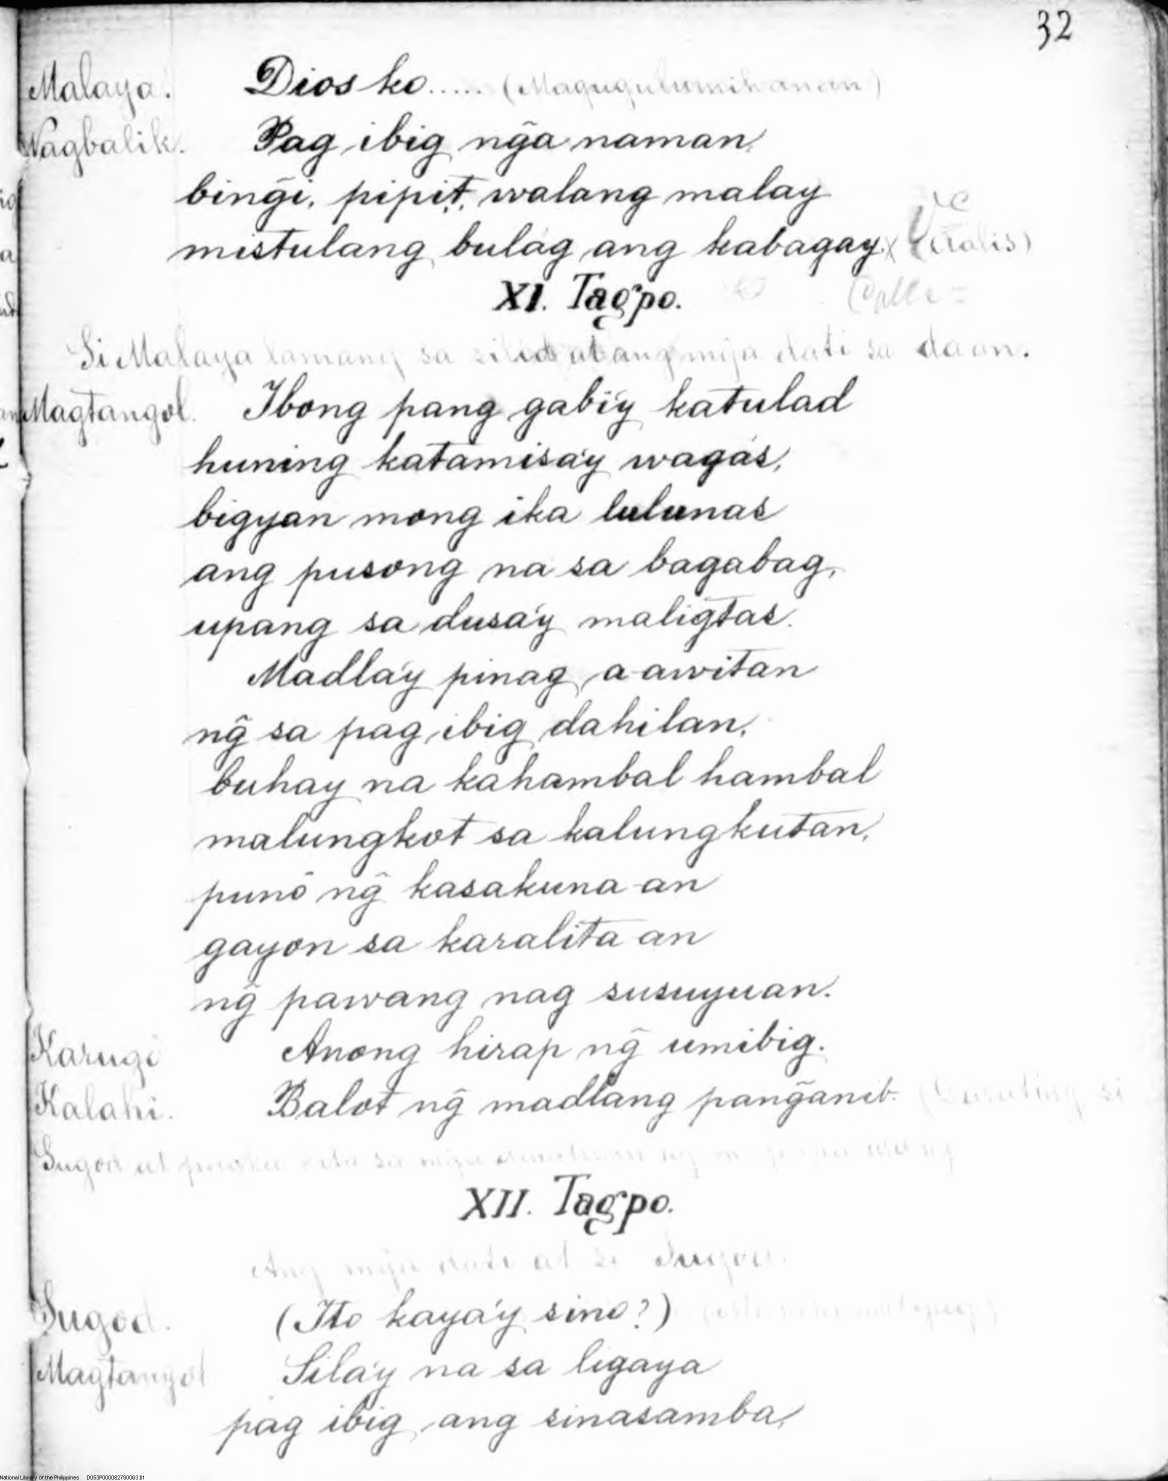 32
Malaya. Dios ko..... (Magugulumihanan)
Nagbalik. Pag ibig ng̃a naman,
bing̃i, pipit, walang malay
mistulang bulág ang kabagay. (Vitalis)
XI. Tagpo.
Si Malaya lamang sa silid at ang mg̃a dati sa daan.
Magtangol. Ibong pang gabi'y katulad
huning katamisa'y wagás,
bigyan mong ika lulunas
ang pusong na sa bagabag,
upang sa dusa'y maligtas.
Madla'y pinag a-awitan
ng̃ sa pag ibig dahilan,
buhay na kahambal hambal
malungkot sa kalungkutan,
punô ng̃ kasakuna-an
gayon sa karalita-an
ng̃ pawang nag susuyuan.
Karugô Anong hirap ng̃ umibig.
Kalahi. Balot ng̃ madlang pang̃anib. (Darating si
Sugod at sa mg̃a
XII. Tagpo.
Ang mg̃a dati at si Sugod.
Sugod. (Ito kaya'y sino?)
Magtangol Sila'y na sa ligaya
pag ibig ang sinasamba,
National Library of the Philippines